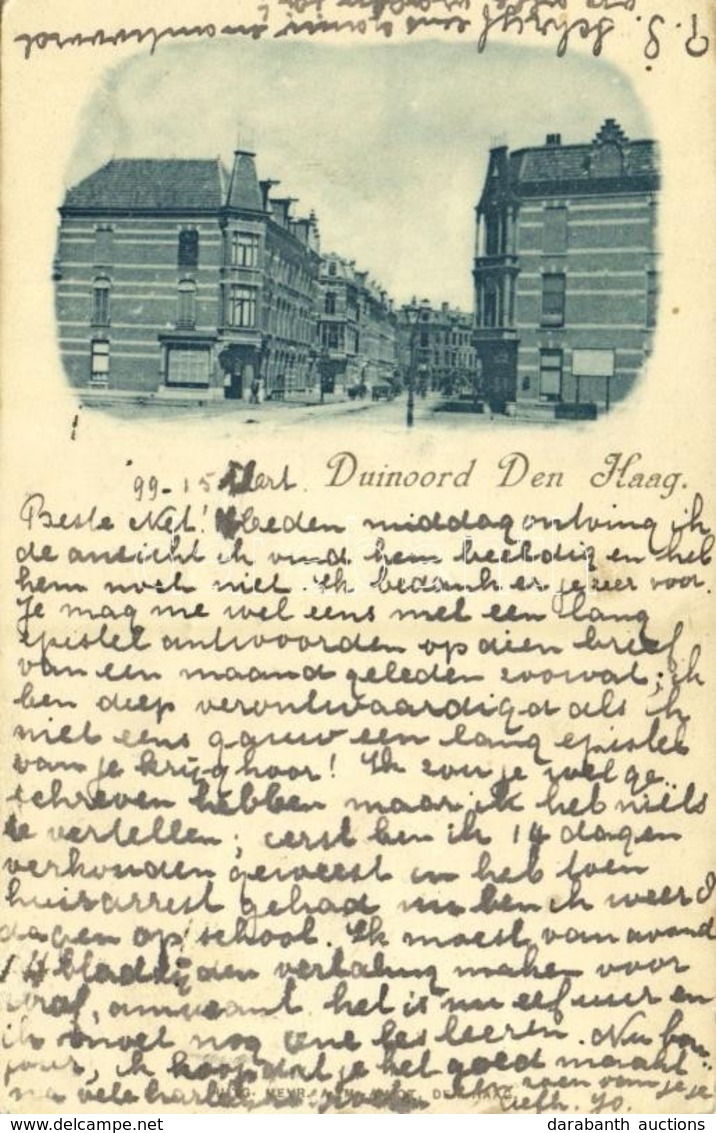 P.S. Schrijf eens
99-15 Mert.
Duinoord Den Haag.
Beste Net! Heden middag ontving ik
de ansicht ik vind hem beeldig en heb
hem nog niet. Ik bedank er je zeer voor.
Je mag me wel eens met een lang
epistel antwoorden op dien brief
van een maand geleden zoowat; ik
ben diep verontwaardigd als ik
niet eens gauw een lang epistel
van je krijg hoor! Ik zou je wel ge
schreven hebben maar ik heb niets
te vertellen; eerst ben ik 14 dagen
verkouden geweest en heb toen
huisarrest gehad nu ben ik weer 8
dagen op school. Ik moest van avond
14 bladzijden vertaling maken voor
straf, amusant het is nu elf uur en
ik moet nog une les leeren. Nu bon
jour, ik hoop dat je het goed maakt
na vele hartelijke zoen van je je
liefh. Jo.
darabanth auctions